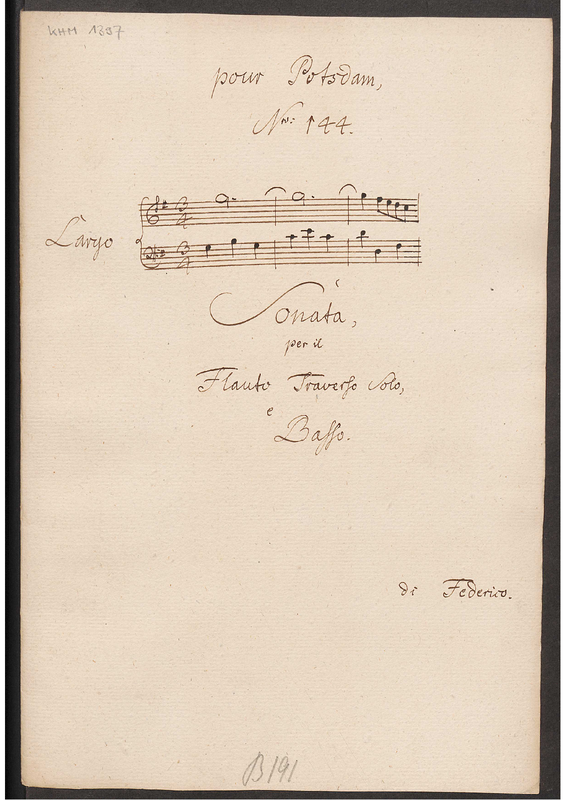 KHM 1397
pour Potsdam,
Nro: 144.
Largo
3
4
3
4
Sonata,
per il
Flauto Traverso Solo,
e
Basso.
di Federico.
B191